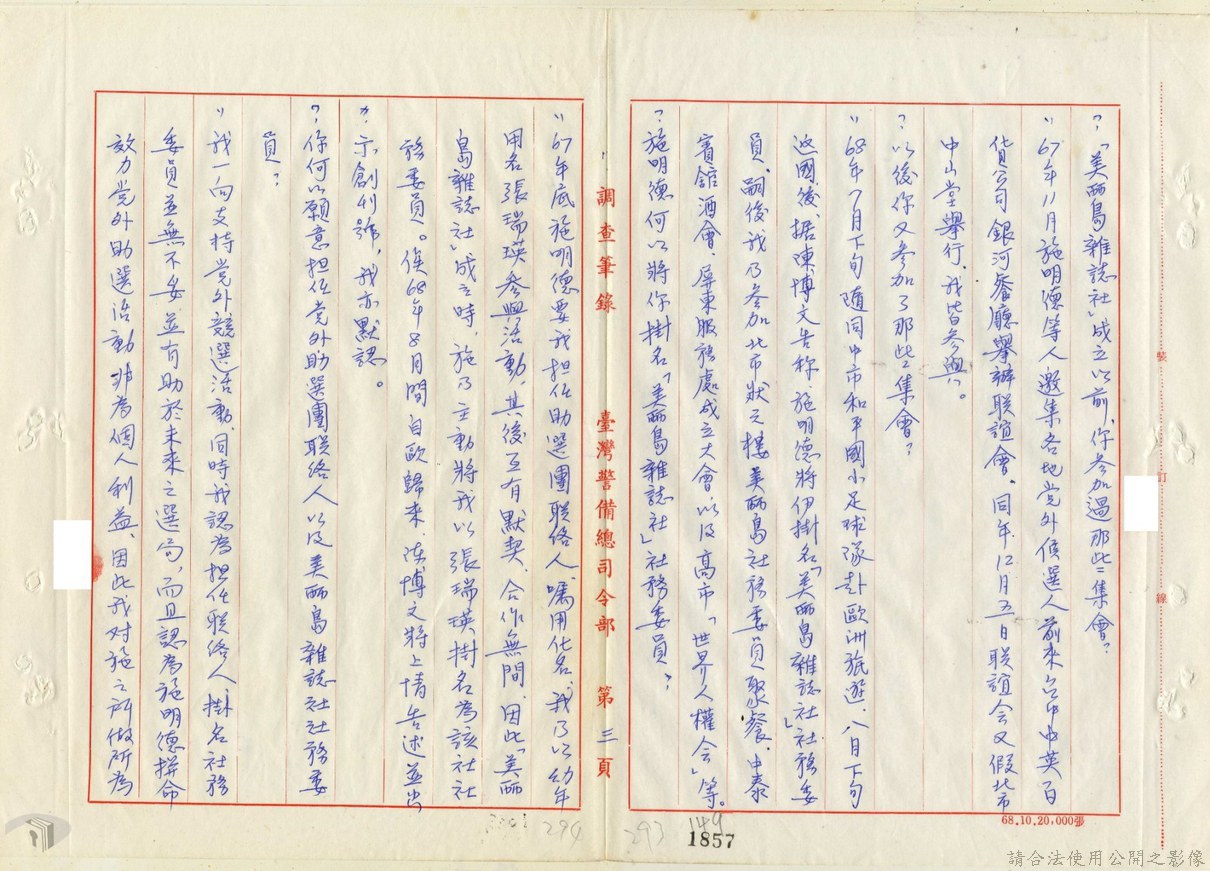 ？「美丽島雜誌社」成立以前，你参加過那些集會？
〃67年11月施明德等人邀集各地党外候選人前來台中中英百
貨公司銀河餐廳舉辦聯誼會、同年12月五日聯誼会又假北市
中山堂舉行，我皆参與。
？以後你又参加了那些集會？
〃68年7月下旬随同中市和平國小足球隊赴歐洲旅遊，八月下旬
返國後，据陳博文告称，施明德將伊掛名「美丽島雜誌社」社務委
員，嗣後我乃参加北市狀元樓美丽島社務委員聚餐，中泰
賓舘酒會，屏東服務處成立大會以及高市「世界人權会」等。
？施明德何以將你掛名「美丽島雜誌社」社務委員？
調查筆錄 臺灣警備總司令部 第三頁
〃67年底施明德要我担任助選團聯络人，嘱用化名，我乃以幼年
用名張瑞瑛参與活動，其後互有默契，合作無間，因此「美丽
島雜誌社」成立時，施乃主動將我以張瑞瑛掛名為該社社
務委員。俟68年8月間自歐歸來，陈博文將上情告述並出
示創刊號，我亦默認。
？你何以願意担任党外助選團聯络人以及美丽島雜誌社社務委
員？
〃我一向支持党外競選活動，同時我認為担任聯络人、掛名社務
委員並無不妥，並有助於未來之選局，而且認為施明德拼命
效力党外助選活動非為個人利益，因此我对施之所做所為
裝 訂 線
68.10.20,000張
149
1857
293
294
請合法使用公開之影像